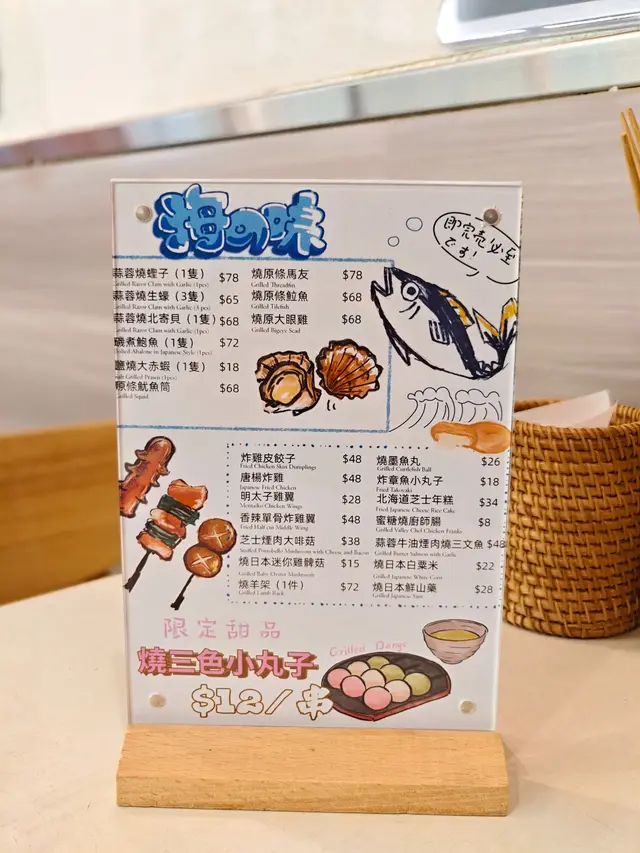 海の味
即完売必至
です!
蒜蓉燒蟶子（1隻） $78
Grilled Razor Clam with Garlic (1pcs)
蒜蓉燒生蠔（3隻） $65
蒜蓉燒北寄貝（1隻） $68
Grilled Razor Clam with Garlic (1pcs)
磯煮鮑魚（1隻） $72
Boiled Abalone in Japanese Style (1pcs)
鹽燒大赤蝦（1隻） $18
Salt Grilled Prawn (1pcs)
原條魷魚筒 $68
Grilled Squid
燒原條馬友 $78
Grilled Threadfin
燒原條鮫魚 $68
Grilled Tilefish
燒原大眼雞 $68
Grilled Bigeye Scad
炸雞皮餃子 $48
Fried Chicken Skin Dumplings
唐楊炸雞 $48
Japanese Fried Chicken
明太子雞翼 $28
Mentaiko Chicken Wings
香辣單骨炸雞翼 $48
Fried Half-cut Middle Wing
芝士煙肉大啡菇 $38
Stuffed Portobello Mushroom with Cheese and Bacon
燒日本迷你雞髀菇 $15
Grilled Baby Oyster Mushroom
燒羊架（1件） $72
Grilled Lamb Rack
燒墨魚丸 $26
Grilled Cuttlefish Ball
炸章魚小丸子 $18
Fried Takoyaki
北海道芝士年糕 $34
Fried Japanese Cheese Rice Cake
蜜糖燒廚師腸 $8
Grilled Valley Chef Chicken Franks
蒜蓉牛油煙肉燒三文魚 $48
Grilled Butter Salmon with Garlic
燒日本白粟米 $22
Grilled Japanese White Corn
燒日本鮮山藥 $28
Grilled Japanese Yam
限定甜品
燒三色小丸子
$12/串
Grilled Dango